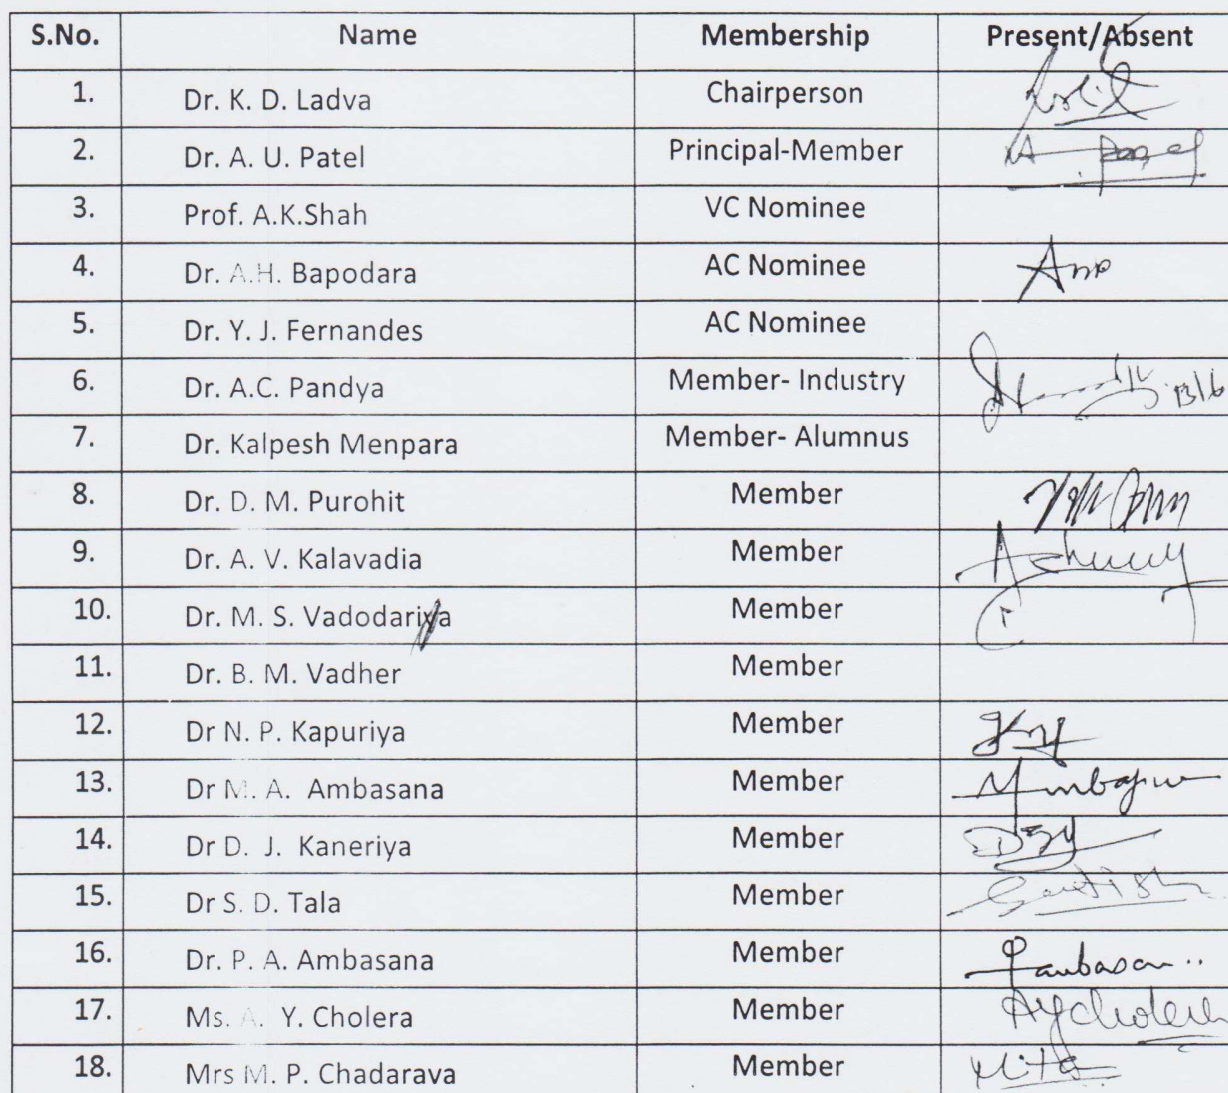 S.No. Name Membership Present/Absent
1. Dr. K. D. Ladva Chairperson
2. Dr. A. U. Patel Principal-Member
3. Prof. A.K.Shah VC Nominee
4. Dr. A.H. Bapodara AC Nominee
5. Dr. Y. J. Fernandes AC Nominee
6. Dr. A.C. Pandya Member- Industry
7. Dr. Kalpesh Menpara Member- Alumnus
8. Dr. D. M. Purohit Member
9. Dr. A. V. Kalavadia Member
10. Dr. M. S. Vadodariya Member
11. Dr. B. M. Vadher Member
12. Dr N. P. Kapuriya Member
13. Dr M. A. Ambasana Member
14. Dr D. J. Kaneriya Member
15. Dr S. D. Tala Member
16. Dr. P. A. Ambasana Member
17. Ms. A. Y. Cholera Member
18. Mrs M. P. Chadarava Member